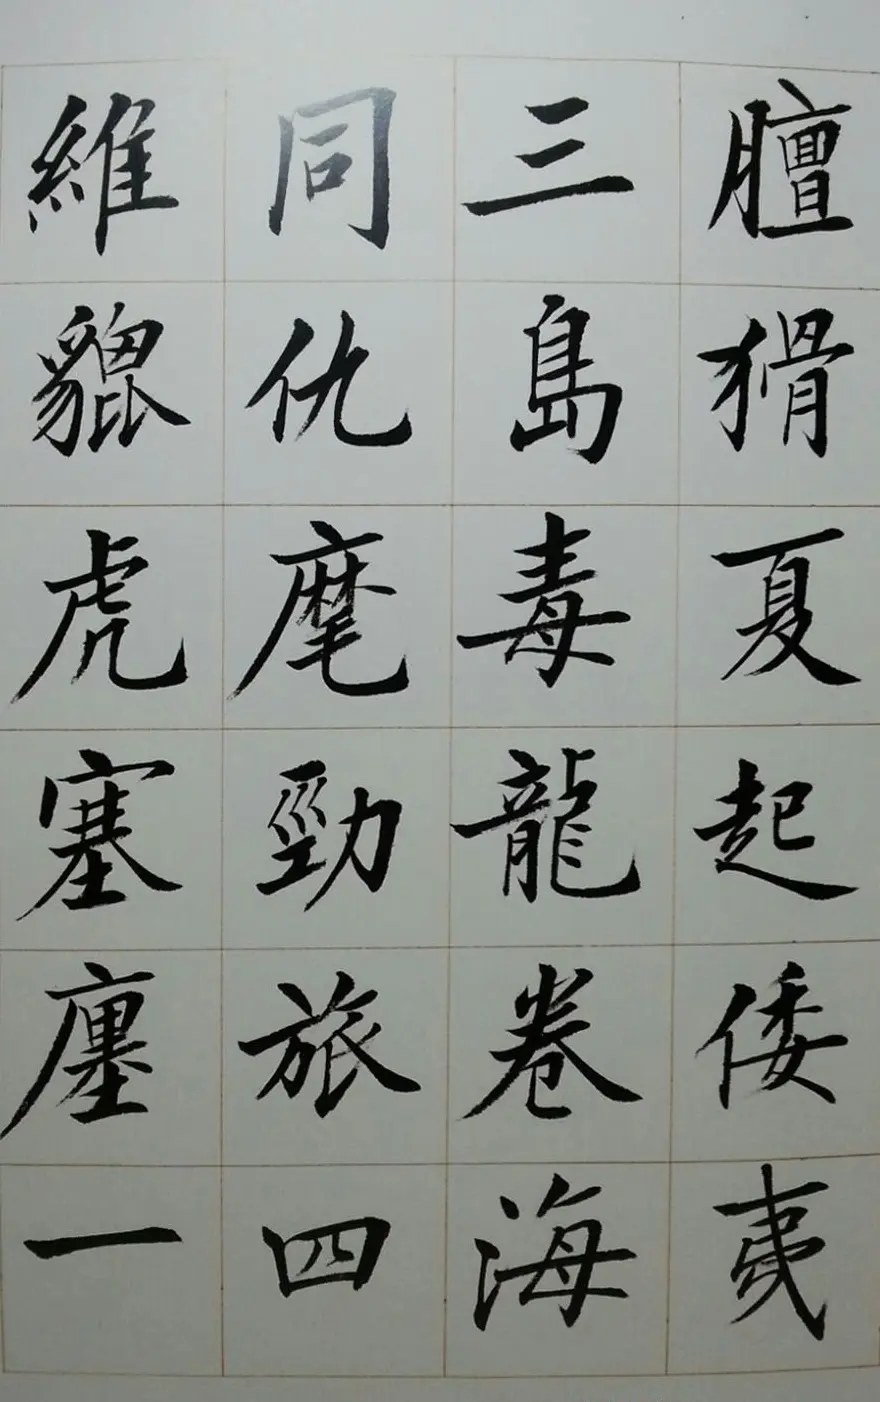 膻猾夏起倭夷
三島毒龍卷海
同仇麾勁旅四
維貔虎塞廛一